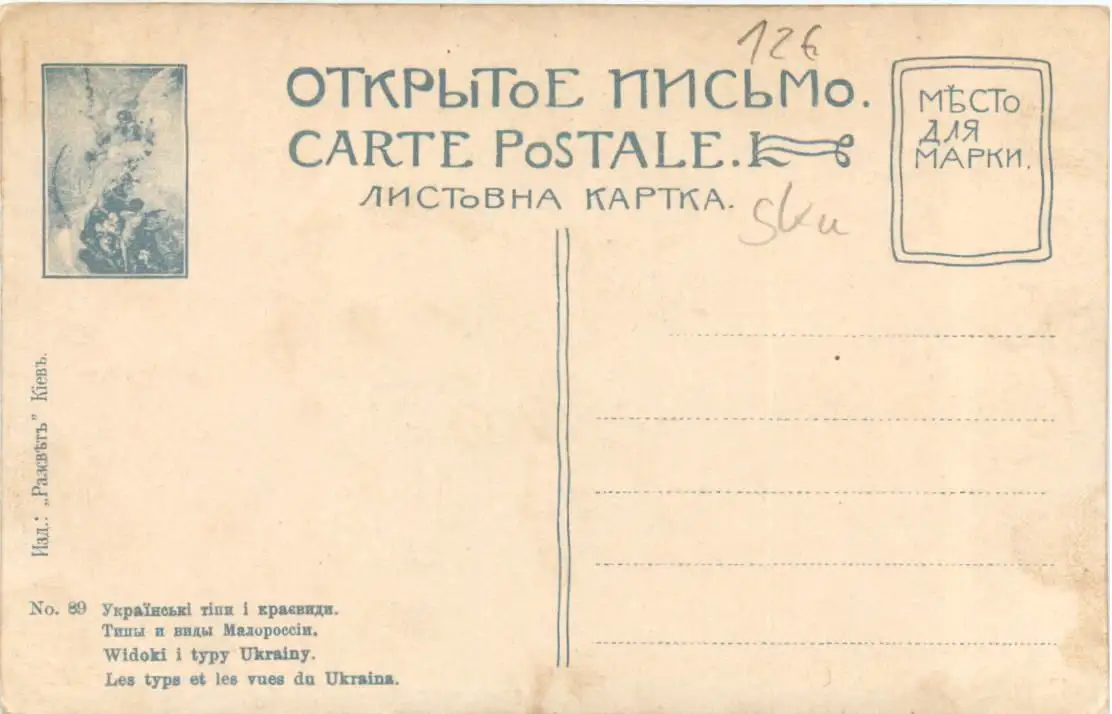 12€
ОТКРЫТОЕ ПИСЬМО.
CARTE POSTALE.
ЛИСТОВНА КАРТКА.
МѢСТО
ДЛЯ
МАРКИ.
Изд.: „Разсвѣтъ” Кіевъ.
No. 89 Українські тіпи і краєвиди.
Типы и виды Малороссіи.
Widoki i typy Ukrainy.
Les typs et les vues du Ukraina.